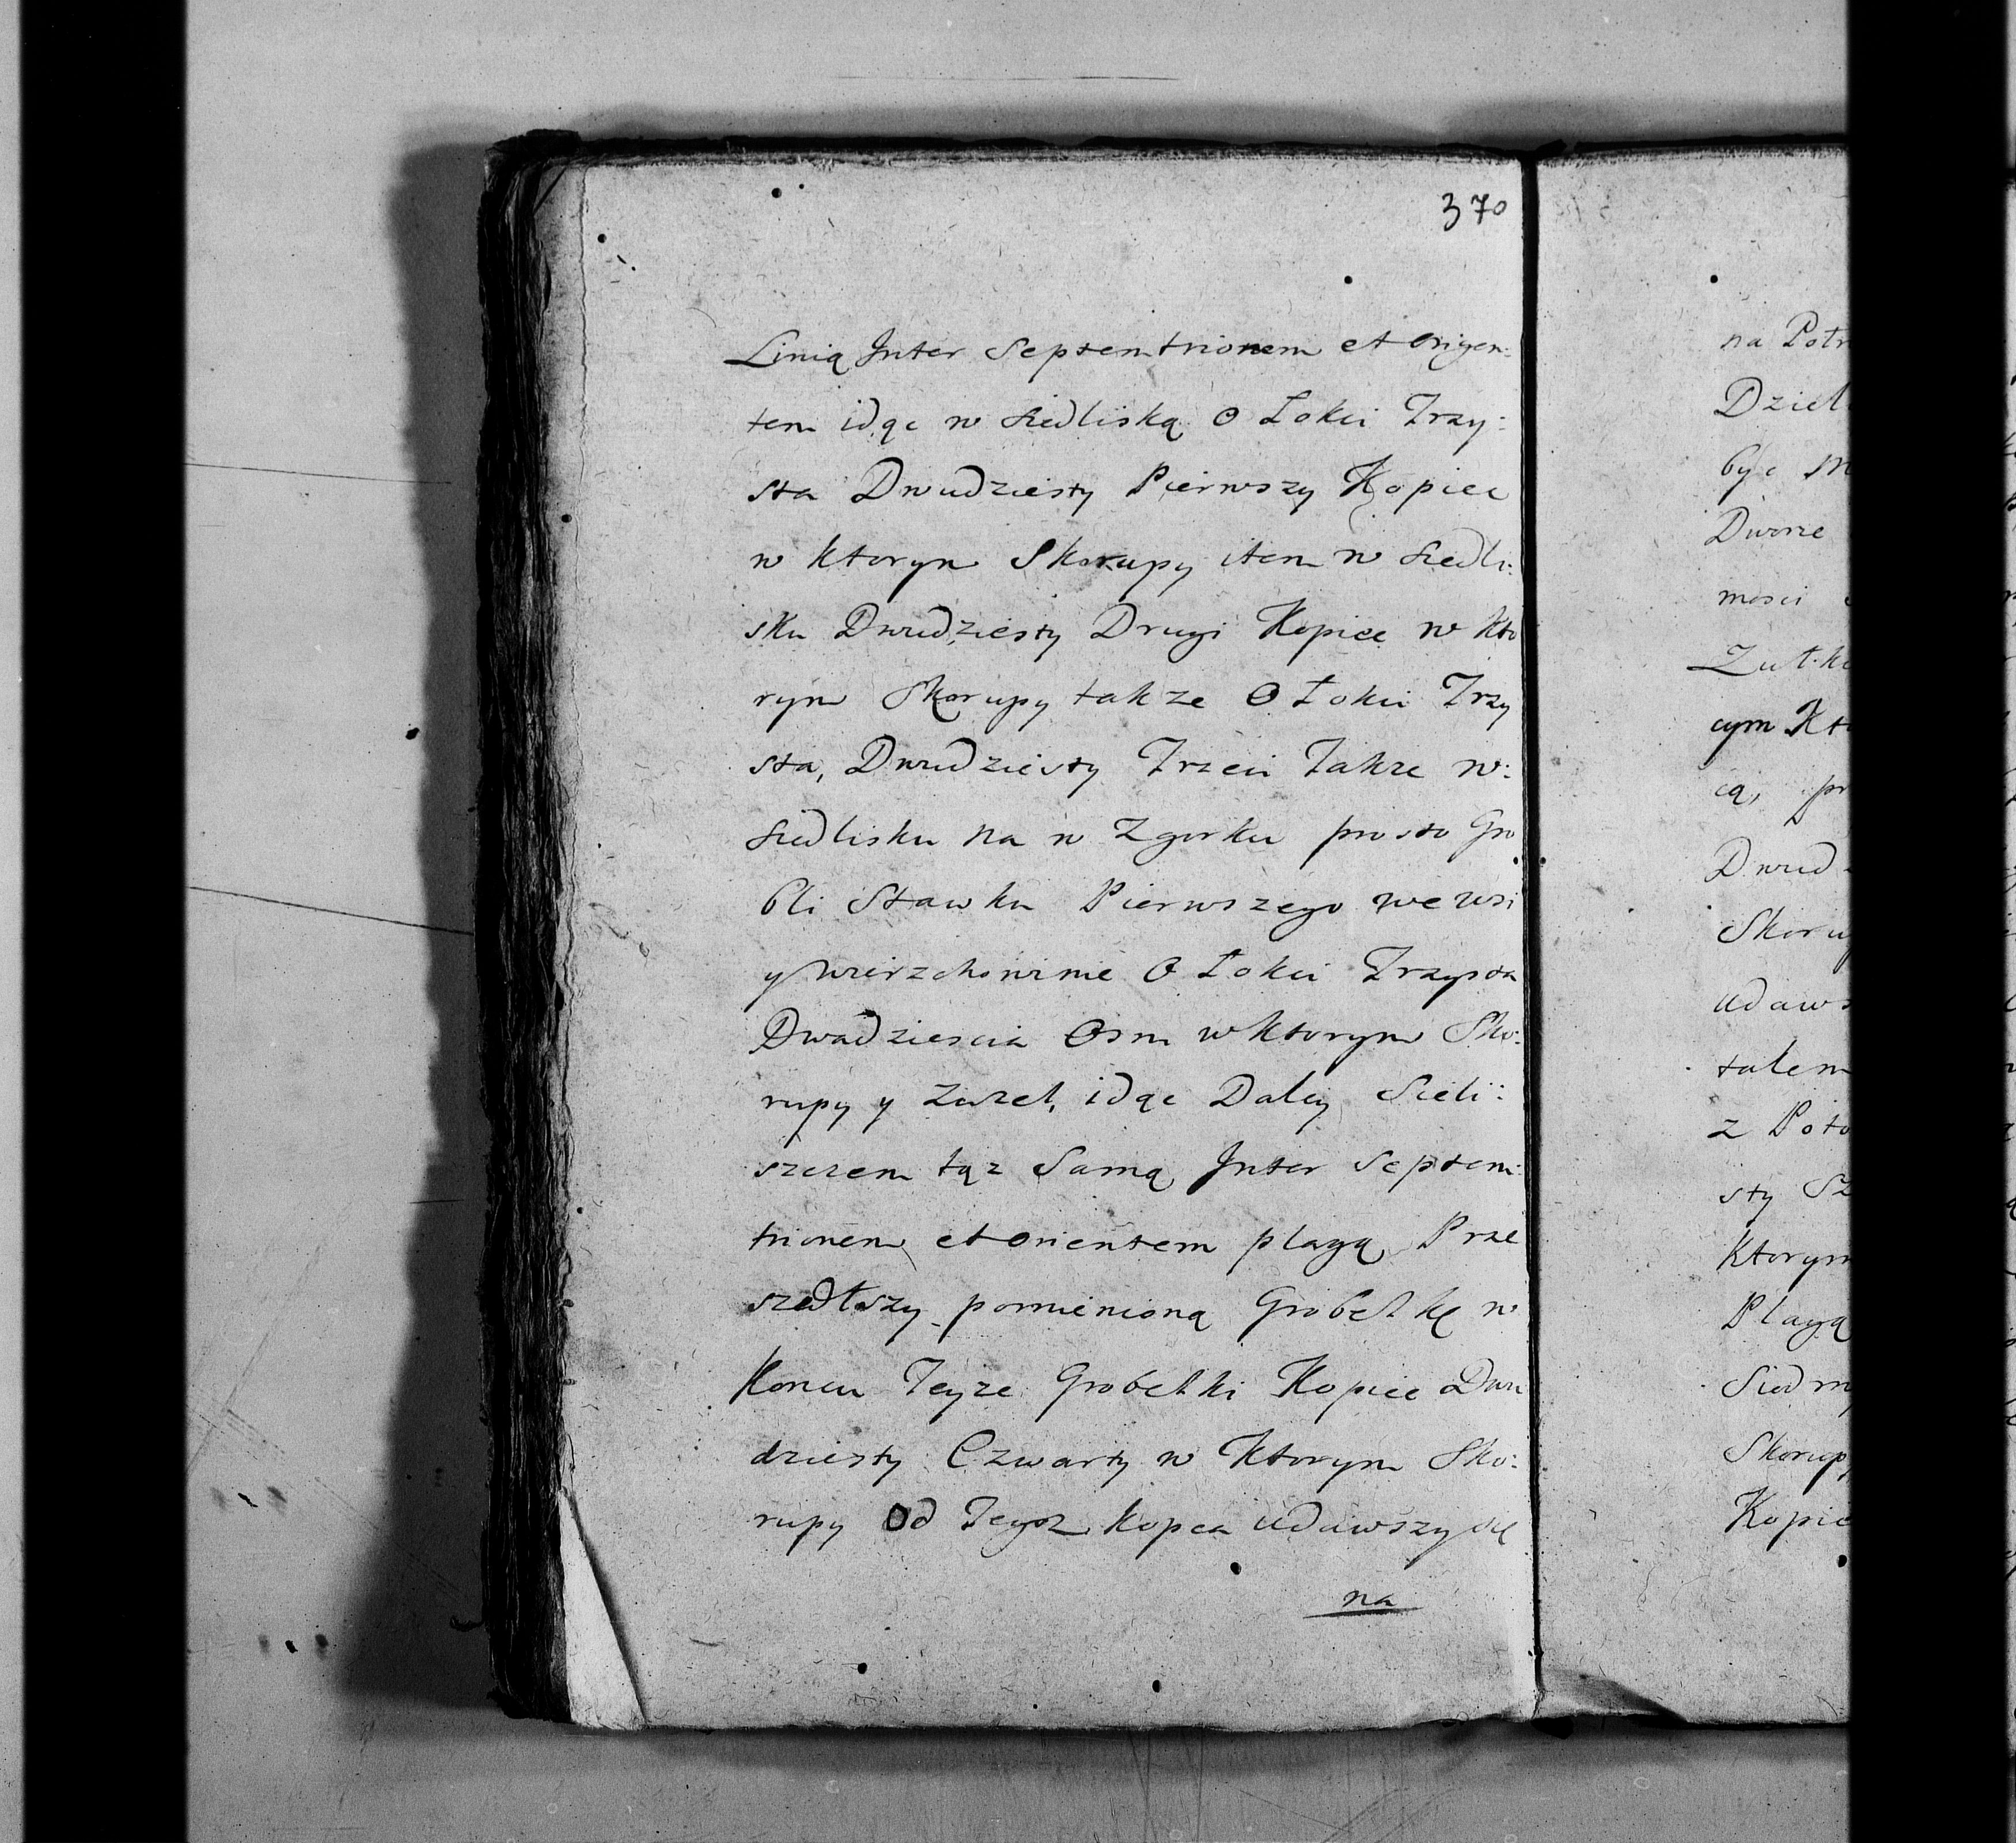 370
Linią Inter Septemtrionem et origen:
tem idąc w siedliską o Łokci Trzy:
sta Dwudziesty Pierwszy Kopiec
w ktorym Skorupy item w siedli:
sku Dwudziesty Drugi Kopiec w kto
rym Skorupy takze o Łokci Trzy
sta, Dwudziesty Trzeci Takze w:
siedlisku na w Zgorku prosto Gro
bli Stawku Pierwszego we wsi
y wierzchowinie o Łokci Trzysta
Dwadziescia Osm w ktorym Sko:
rupy y Zuzel, idąc Daley Sieli:
szczem tąz Samą Inter Septem:
trionem et orientem plagą Prze
szedłszy pomienioną Grobelkę w
Koncu Teyze Grobelki Kopiec Dwu
dziesty Czwarty w Ktorym Sko:
rupy Od Tegoz kopca udawszy się
na
na Potr
Dziel
byc m
Dworze
mosci
Zutk
cym Kt
cą, pr
Dwud
Skoru
udaws
talem
z Poto
sty Sz
Ktorym
Plagą
Siedm
Skorup
Kopie